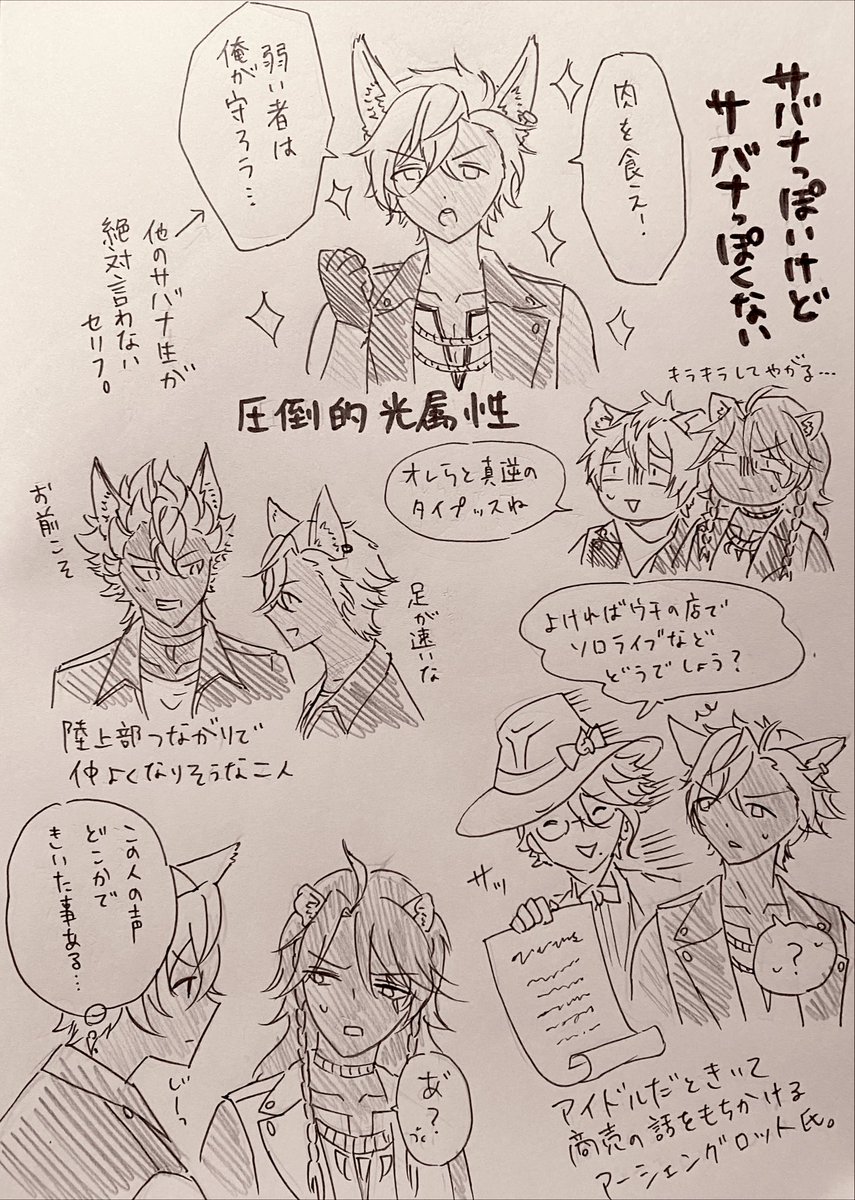 サバナっぽいけど
サバナっぽくない
肉を食え!
弱い者は
俺が守ろう…
他のサバナ生が
絶対言わない
セリフ。
圧倒的光属性
キラキラしてやがる…
オレらと真逆の
タイプッスね
お前こそ
足が速いな
陸上部つながりで
仲よくなりそうな二人
よければウチの店で
ソロライブなど
どうでしょう?
サッ
?
アイドルだときいて
商売の話をもちかける
アーシェングロット氏。
この人の声
どこかで
きいた事ある…
じーっ
あ゛?